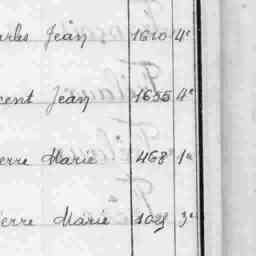 arles Jean 1610 4e
cent Jean 1655 4e
erre Marie 468 1e
ierre Marie 1029 3e